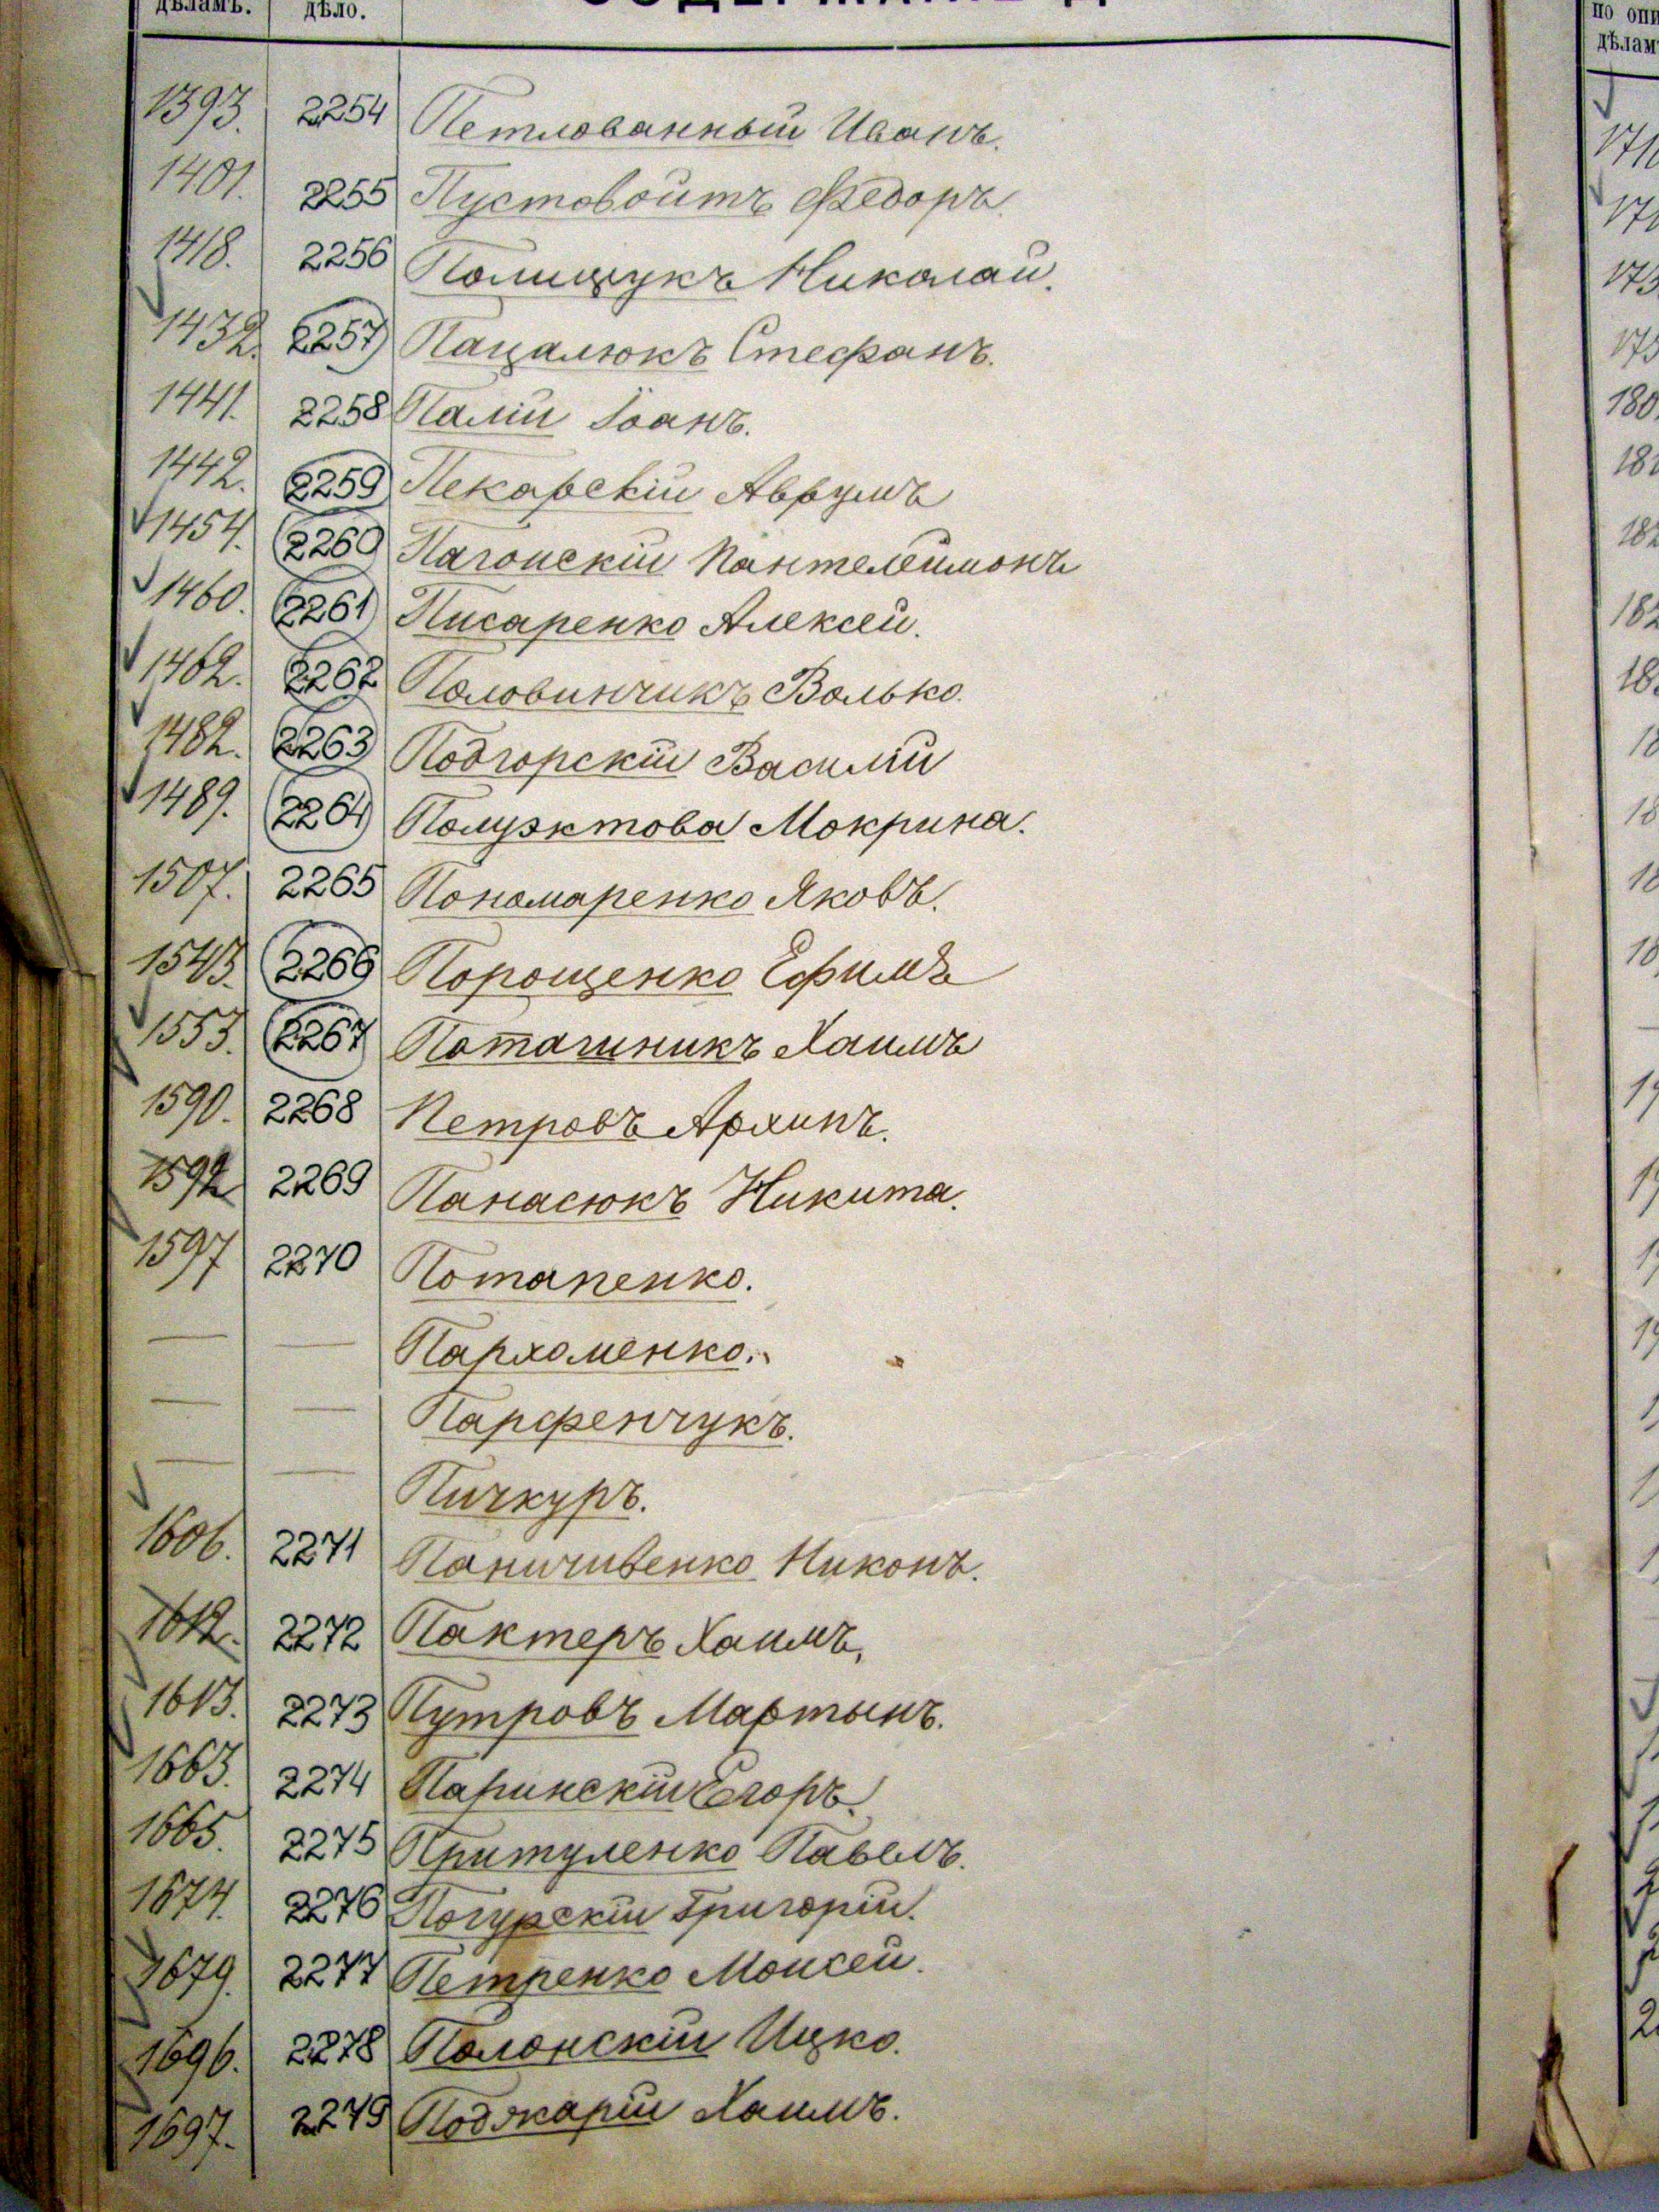 дѣламъ. дѣло.
1393. 2254 Петлованный Иванъ.
1401. 2255 Пустовойтъ Федоръ.
1418. 2256 Полищукъ Николай.
1432. 2257 Пацалюкъ Стефанъ.
1441. 2258 Палій Іоанъ.
1442. 2259 Пекарскій Аврумъ
1454. 2260 Пагонскій Пантелеймонъ
1460. 2261 Писаренко Алексей.
1462. 2262 Половинчикъ Волько.
1482. 2263 Подгорскій Василій
1489. 2264 Полуэктова Мокрина.
1507. 2265 Пономаренко Яковъ.
1543. 2266 Порощенко Ефимъ
1553. 2267 Поташникъ Хаимъ
1590. 2268 Петровъ Архипъ.
1592 2269 Панасюкъ Никита.
1597 2270 Потапенко.
— — Пархоменко.
— — Парфенчукъ.
— — Пичкуръ.
1606. 2271 Паничивенко Никонъ.
1612. 2272 Пактеръ Хаимъ,
1613. 2273 Путровъ Мартынъ.
1663. 2274 Паринскій Егоръ.
1665. 2275 Притуленко Павелъ.
1674. 2276 Погурскій Григорій.
1679. 2277 Петренко Моисей.
1696. 2278 Полонскій Ицко.
1697. 2279 Поджарій Хаимъ.